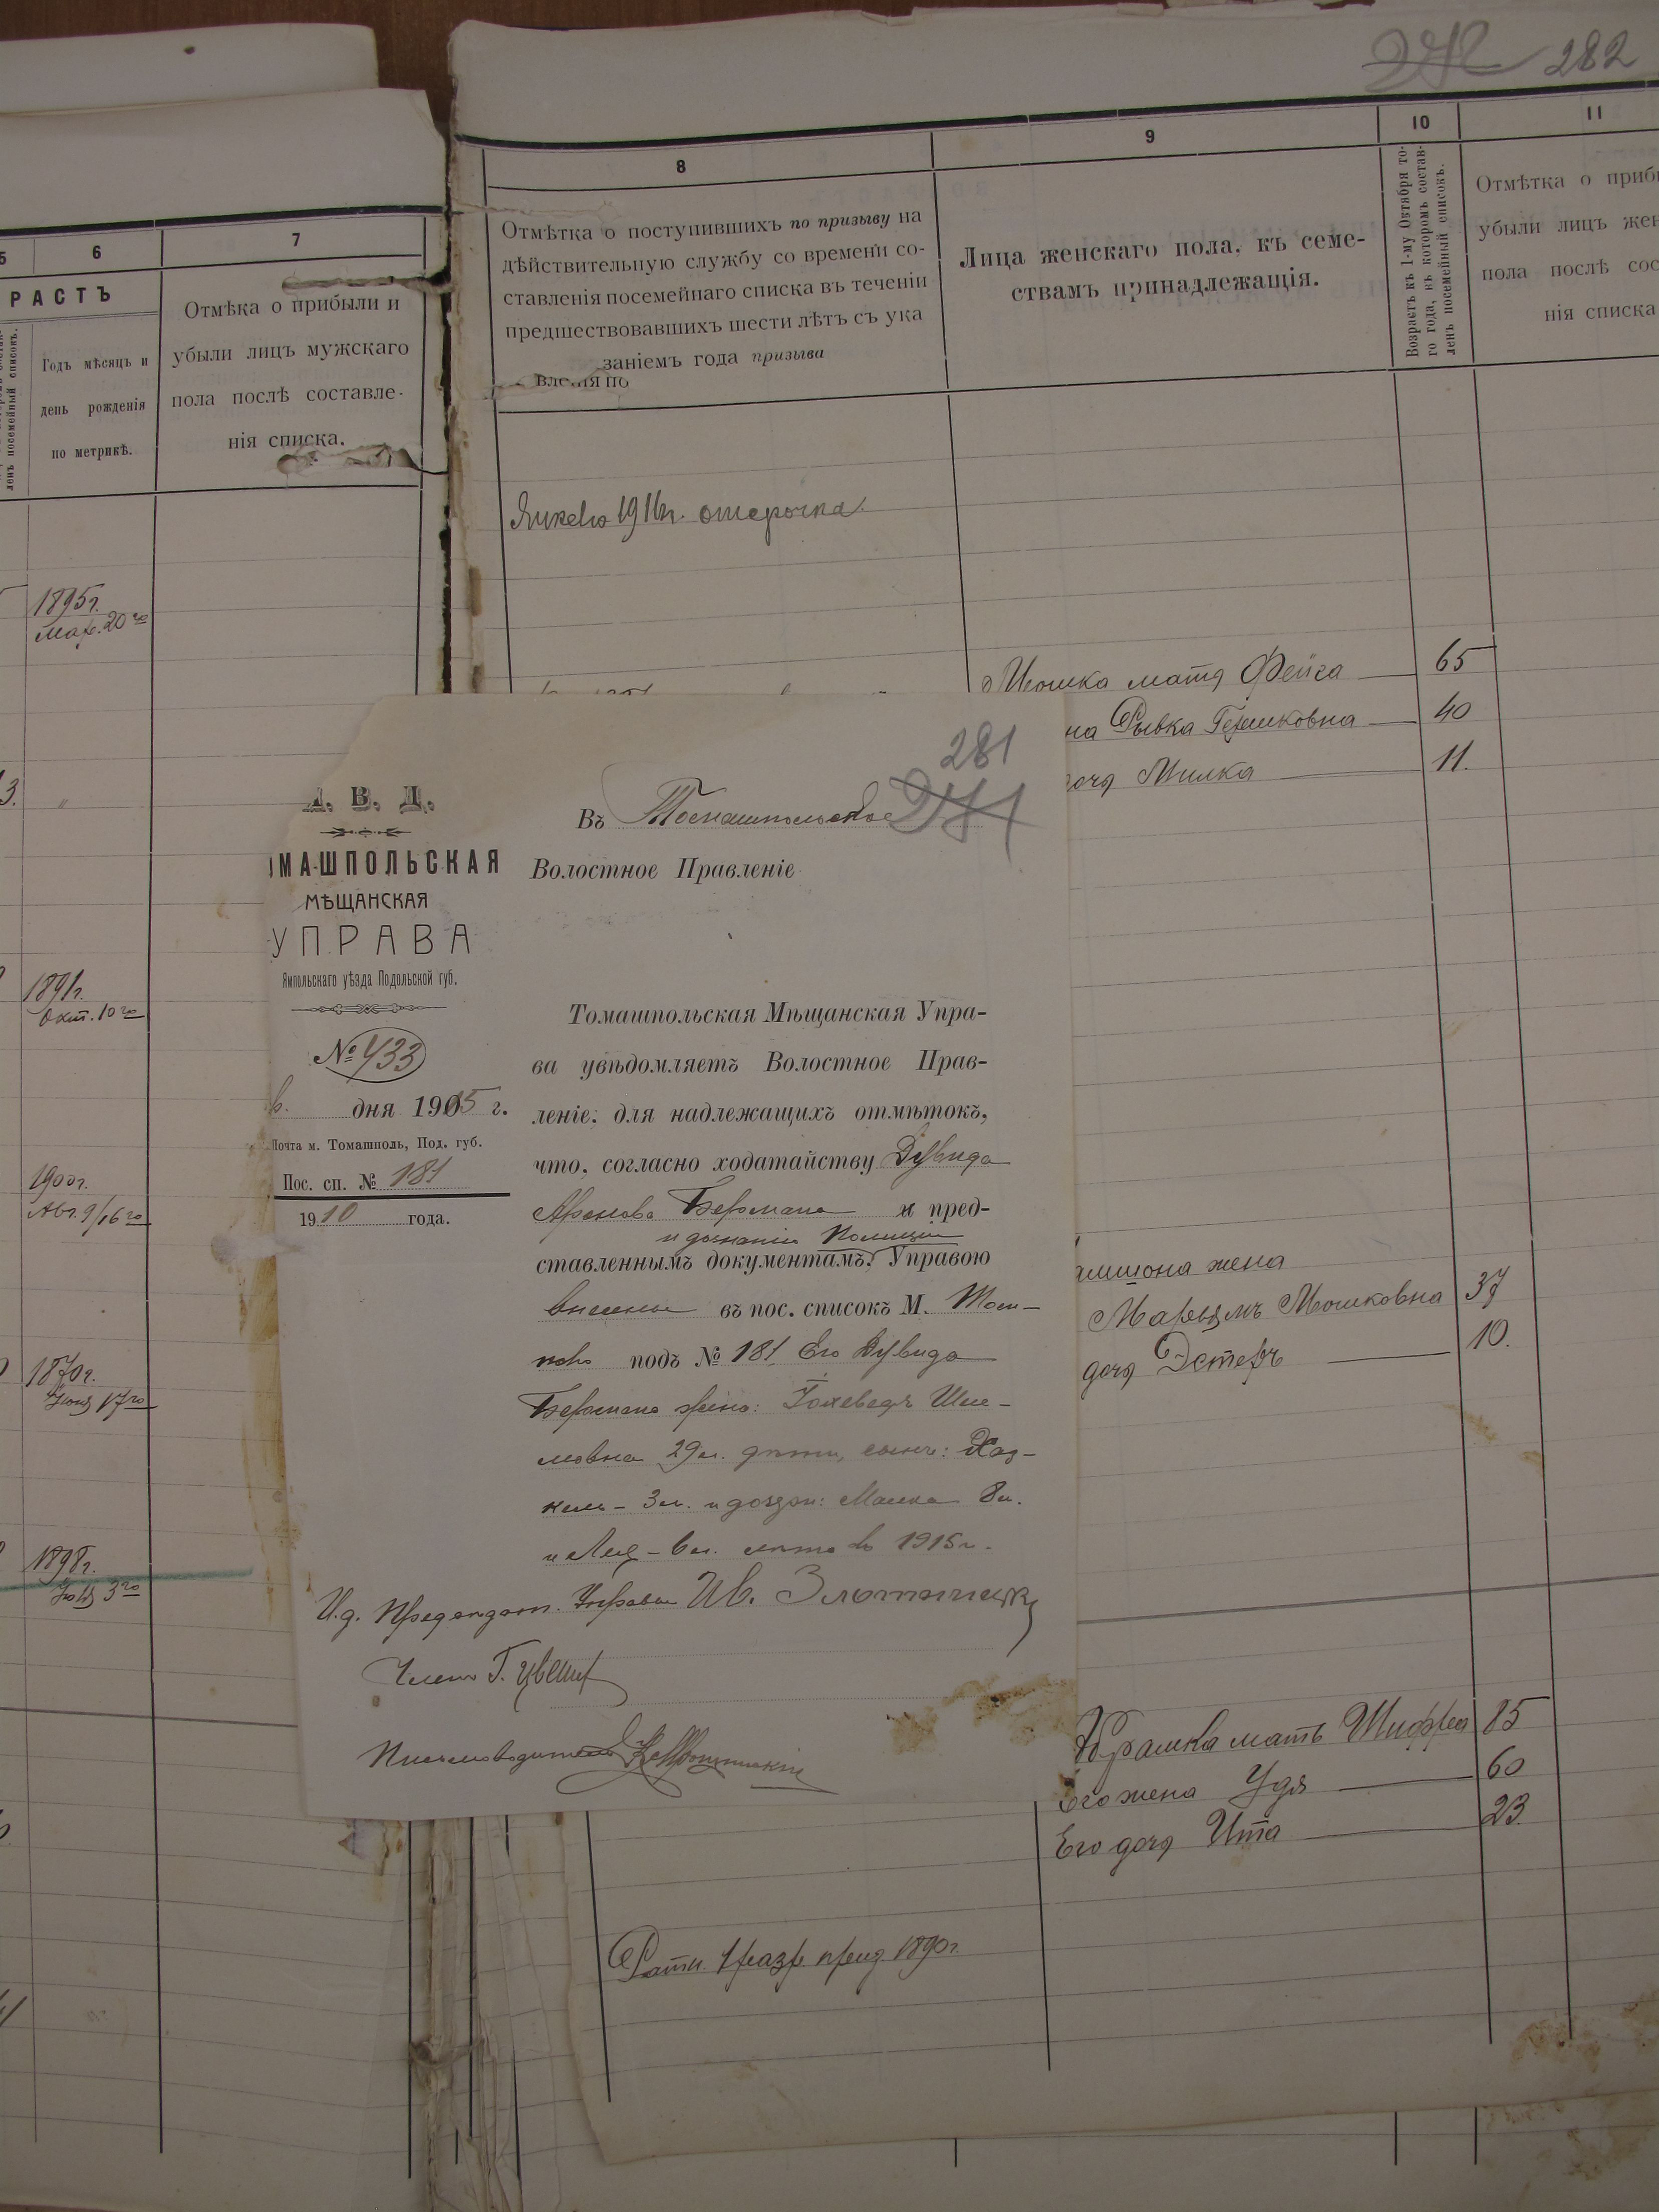 282
5
6
7
РАСТЪ
Годъ мѣсяцъ и
день рожденія
по метрикѣ.
Отмѣка о прибыли и
убыли лицъ мужскаго
пола послѣ составле-
нія списка.
8
9
10
11
Отмѣтка о поступившихъ по призыву на
дѣйствительную службу со времени со-
ставленія посемейнаго списка въ теченіи
предшествовавшихъ шести лѣтъ съ ука
заніемъ года призыва
Лица женскаго пола, къ семе-
ствамъ принадлежащія.
Возрастъ къ 1-му Октября то-
го года, въ которомъ состав-
ленъ посемейный списокъ.
Отмѣтка о приб
убыли лицъ жен
пола послѣ сос
нія списка
1916г. отсрочка
1895г.
Мар. 20го
3.
1891г.
Окт. 10го
1900г.
Авг. 9/16го
1870г.
17го
1898г.
3го
Иошка мать Фейга 65
на Рывка Гершковна 40
дочь Милка 11.
жена
Мошковна 37
дочь Эстеръ 10.
мать Шифра 85
Его жена Удя 60
Его дочь Ита 23.
Ратн. 1 разр. 1890г.
281
. В. Д.
МАШПОЛЬСКАЯ
МѢЩАНСКАЯ
УПРАВА
Ямпольскаго уѣзда Подольской губ.
№ 433
дня 1915 г.
Почта м. Томашполь, Под. губ.
Пос. сп. № 181
1910 года.
Въ Томашпольское
Волостное Правленіе
Томашпольская Мѣщанская Упра-
ва увѣдомляетъ Волостное Прав-
леніе, для надлежащихъ отмѣтокъ,
что, согласно ходатайству Дувида
Аронова Бермана и пред-
и дознанію Полиціи
ставленнымъ документамъ, Управою
внесены въ пос. списокъ М. Том-
поль подъ № 181 Его Дувида
Бермана жена: Гохеведъ Шле-
мовна 29 л. дѣти, сынъ: Хаз-
кель - 3 л. и дочери: Малка 8 л.
и Лея - 6 л. лѣтъ въ 1915 г.
И. д. Предсѣдат. Управы Ив.
Членъ Г.
Письмоводитель